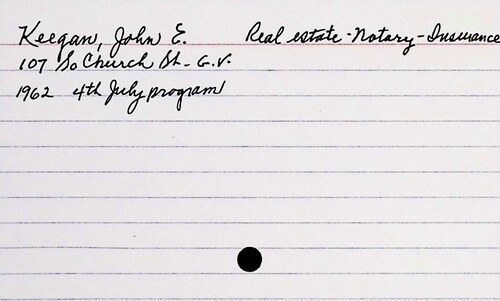 Keegan, John E. Real estate - Notary - Insurance
107 So Church St - G.V.
1962 4th July program